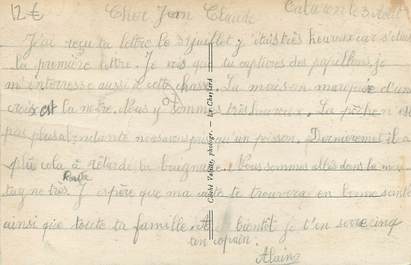 12€
Cher Jean Claude
le 3 Août
J'ai reçu ta lettre le 31 juillet j'étais très heureux car s'était
la première lettre. Je vois que tu captives des papillons, je
m'interesse aussi à cette chasse. La maison marquée d'une
croix est la notre. Nous y sommes très heureux. La pêche n'est
pas plus un poisson. Dernièrement il a
plu cela a retardé la baignade. Nous sommes allés dans la mon
tagne très haute J'espère que ma carte te trouvera en bonne santé
ainsi que toute ta famille. A bientôt je t'en serre cinq
ton copain.
Alain